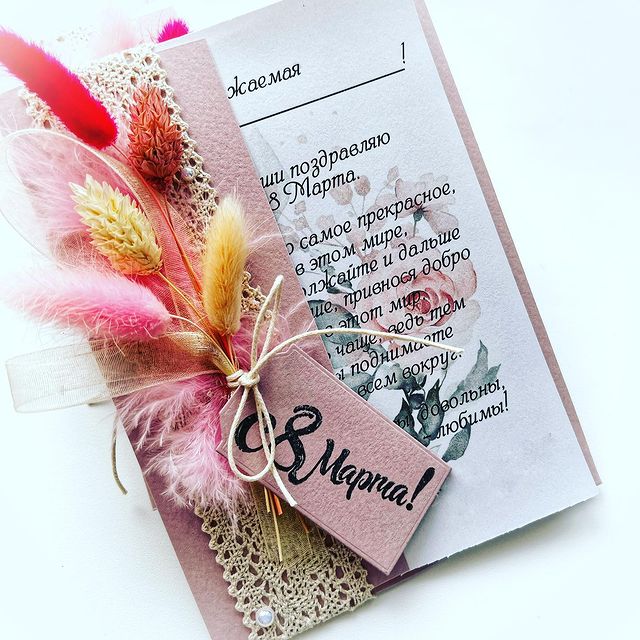 жаемая !
ши поздравляю
8 Марта.
самое прекрасное,
в этом мире,
лжайте и дальше
ше, привнося добро
этот мир,
чаще, ведь тем
поднимаете
всем вокруг.
довольны,
любимы!
08
Марта!